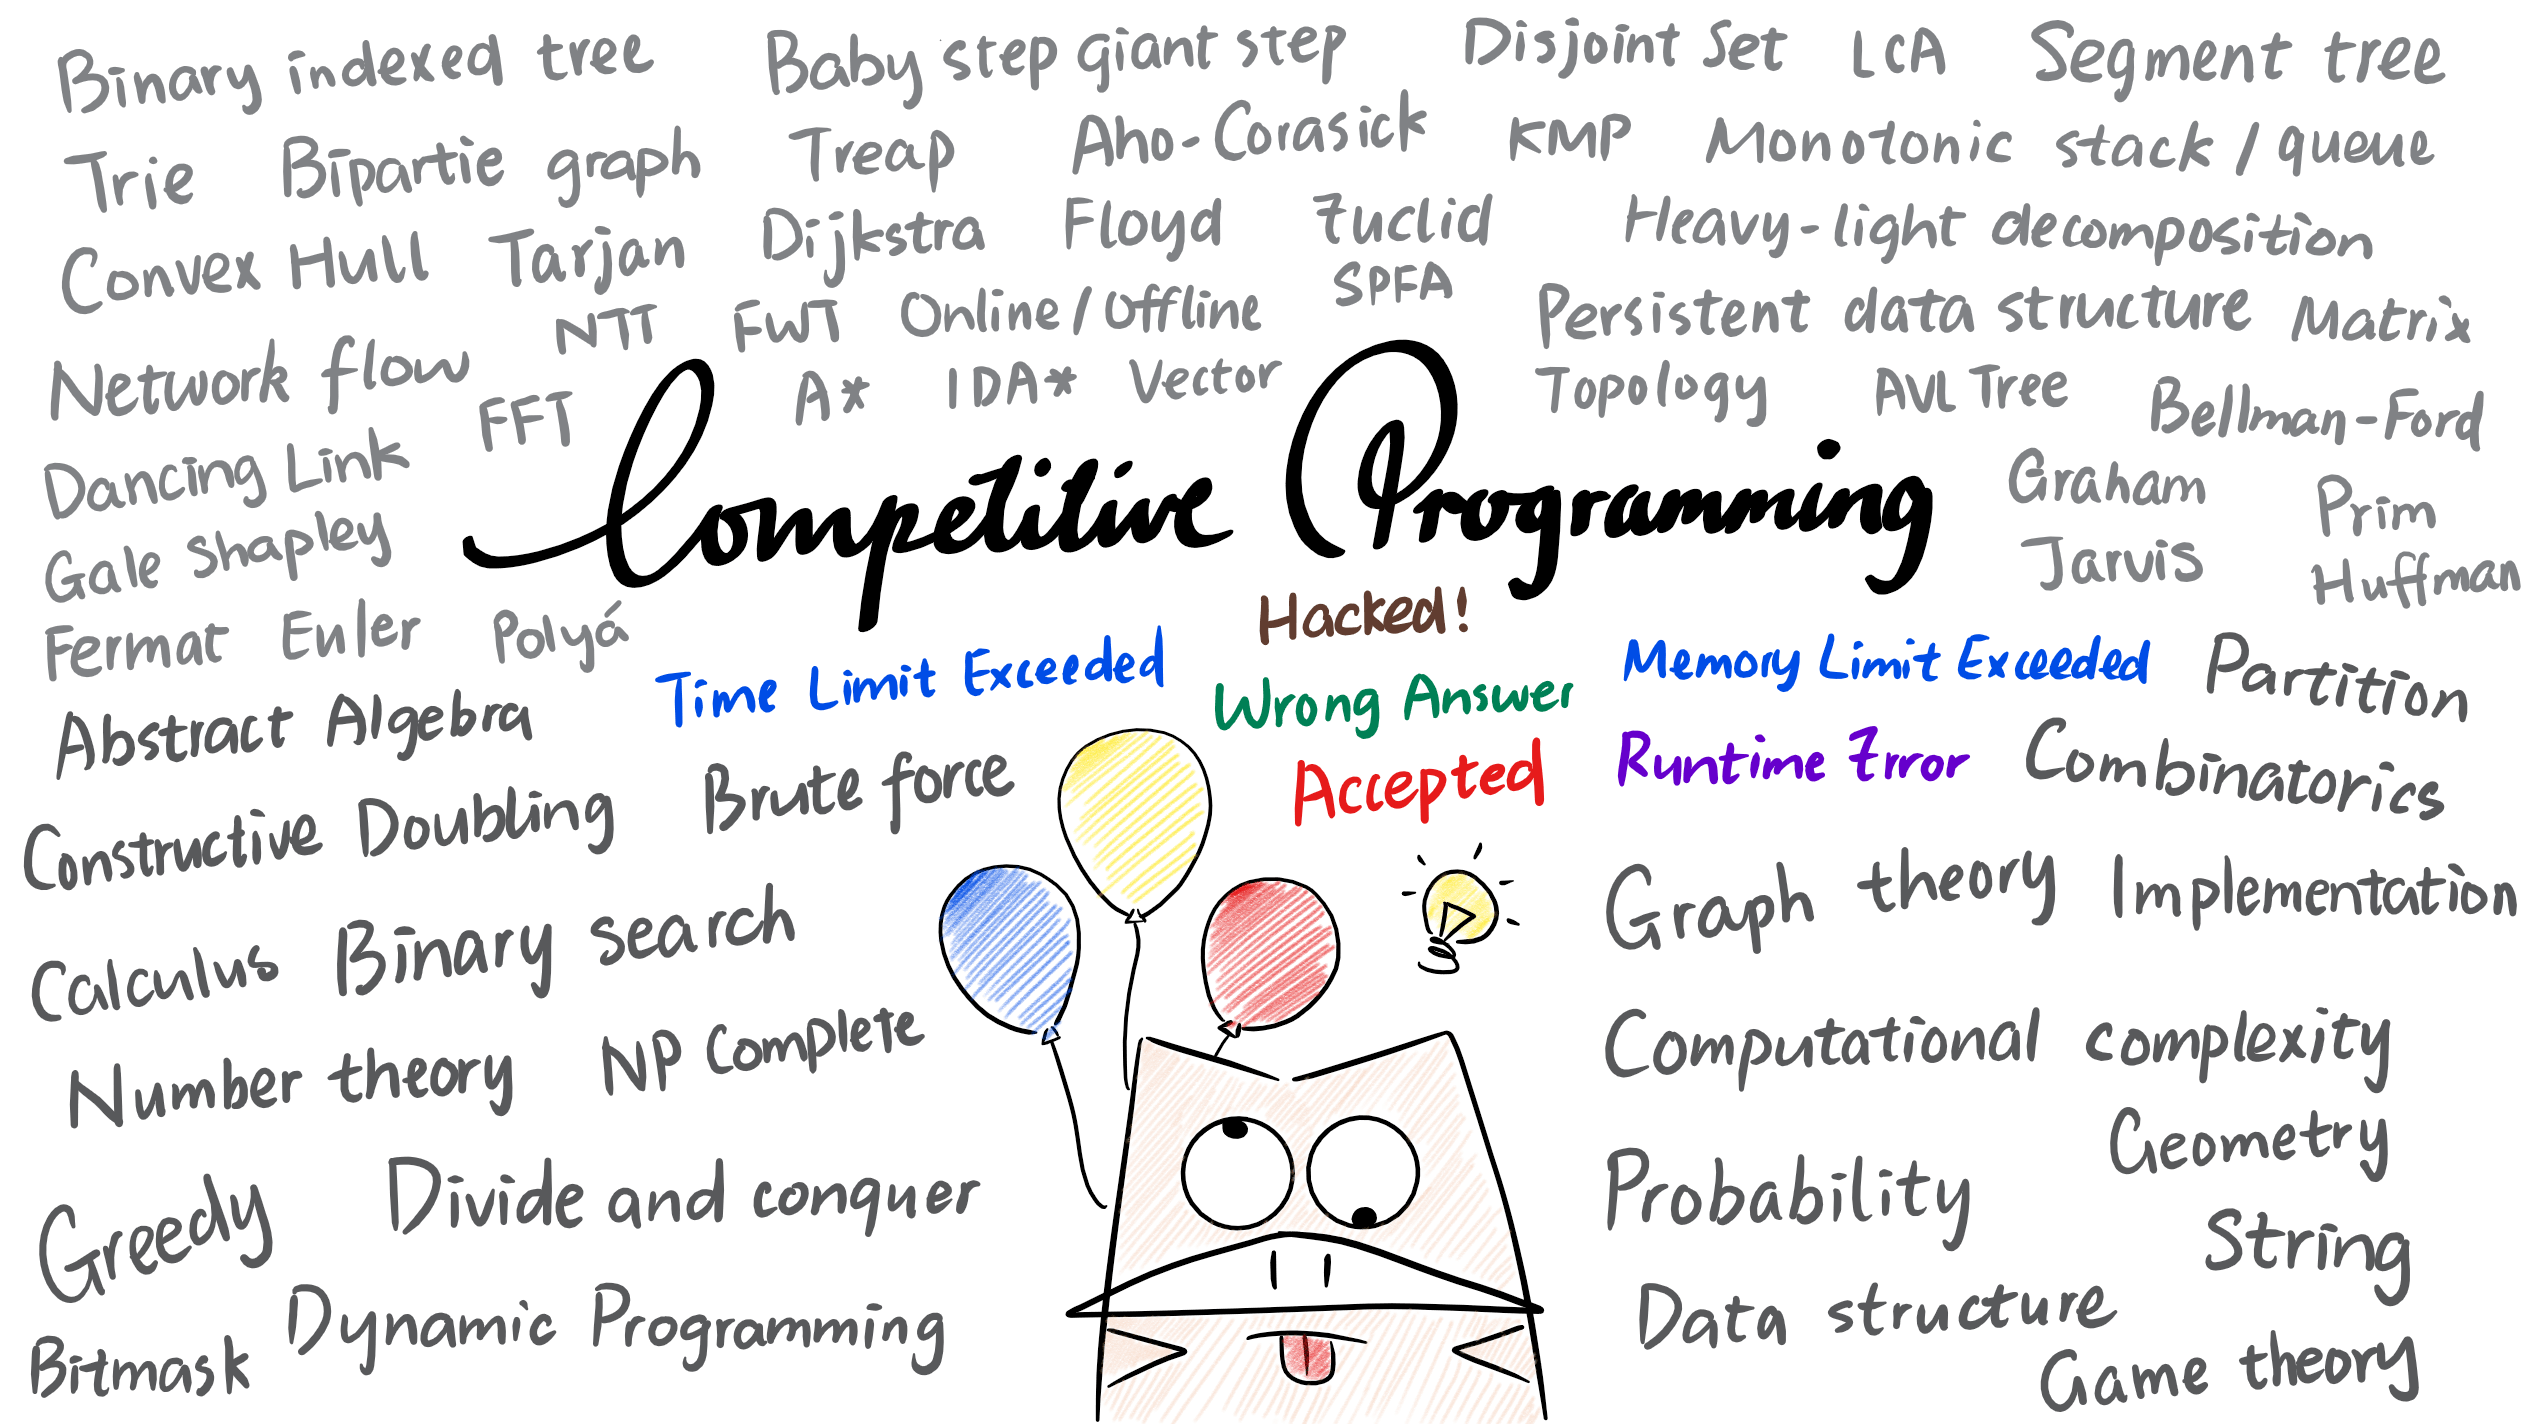 Binary indexed tree Baby step giant step Disjoint Set LCA Segment tree
Trie Bipartie graph Treap Aho-Corasick KMP Monotonic stack / queue
Convex Hull Tarjan Dijkstra Floyd Euclid Heavy-light decomposition
SPFA
Network flow NTT FWT Online / Offline Persistent data structure Matrix
FFT A* IDA* Vector Topology AVL Tree Bellman-Ford
Dancing Link
Competitive Programming
Graham Prim
Gale Shapley
Jarvis Huffman
Fermat Euler Polyá
Hacked!
Time Limit Exceeded
Wrong Answer
Memory Limit Exceeded
Partition
Abstract Algebra
Brute force
Accepted
Runtime Error
Combinatorics
Constructive Doubling
Graph theory Implementation
Calculus Binary search
Number theory NP Complete
Computational complexity
Geometry
Greedy Divide and conquer
Probability
String
Bitmask Dynamic Programming
Data structure
Game theory